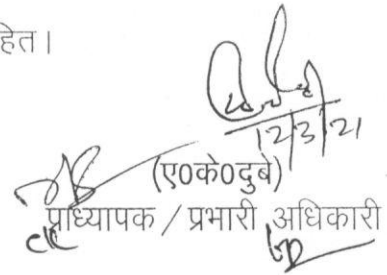 हित।
12/3/21
(ए०के०दुबे)
प्राध्यापक / प्रभारी अधिकारी